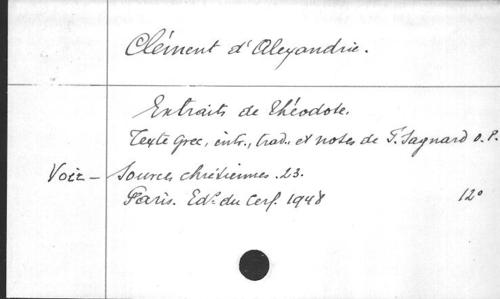 Clément d'Alexandrie.
Extraits de Théodote.
Texte grec, intr., trad. et notes de F. Sagnard O.P.
Voir - Sources chrétiennes. 23.
Paris. Ed. du Cerf. 1948 12°